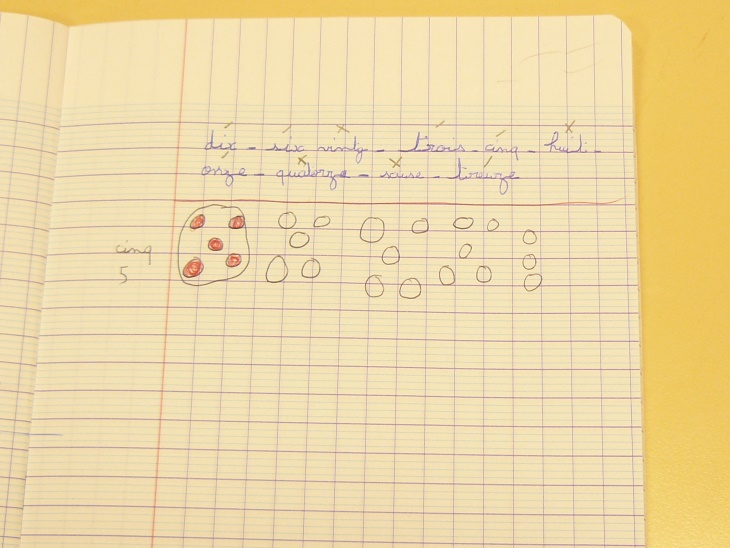 dix - six vinty - trois - cinq - huiti -
onze - quatorze - seuse - treuze
cinq
5